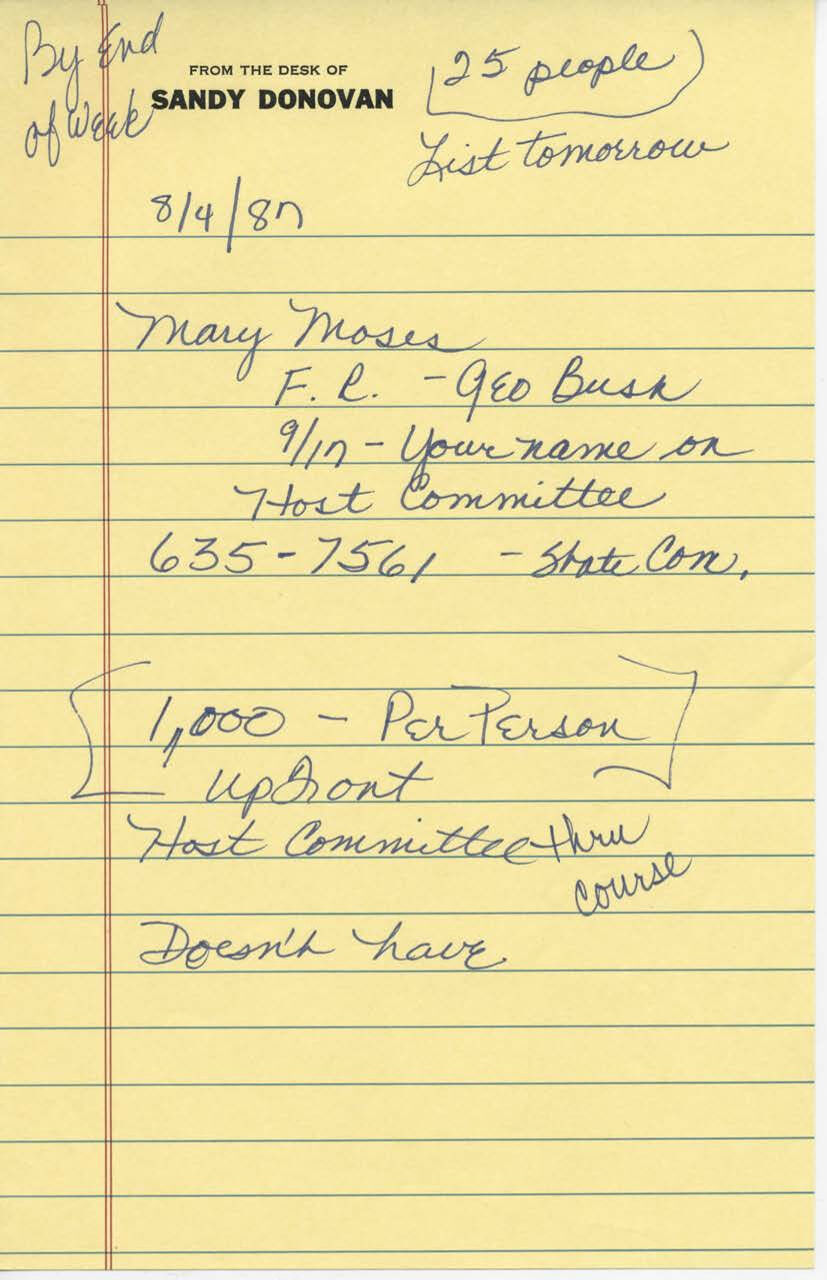 By End
of Week
FROM THE DESK OF
SANDY DONOVAN
25 people
List tomorrow
8/4/87
Mary Moses
F. R. - Geo Bush
9/17 - Your name on
Host Committee
635-7561 - State Com.
1,000 - Per Person
Upfront
Host Committee thru
course
Doesn't have